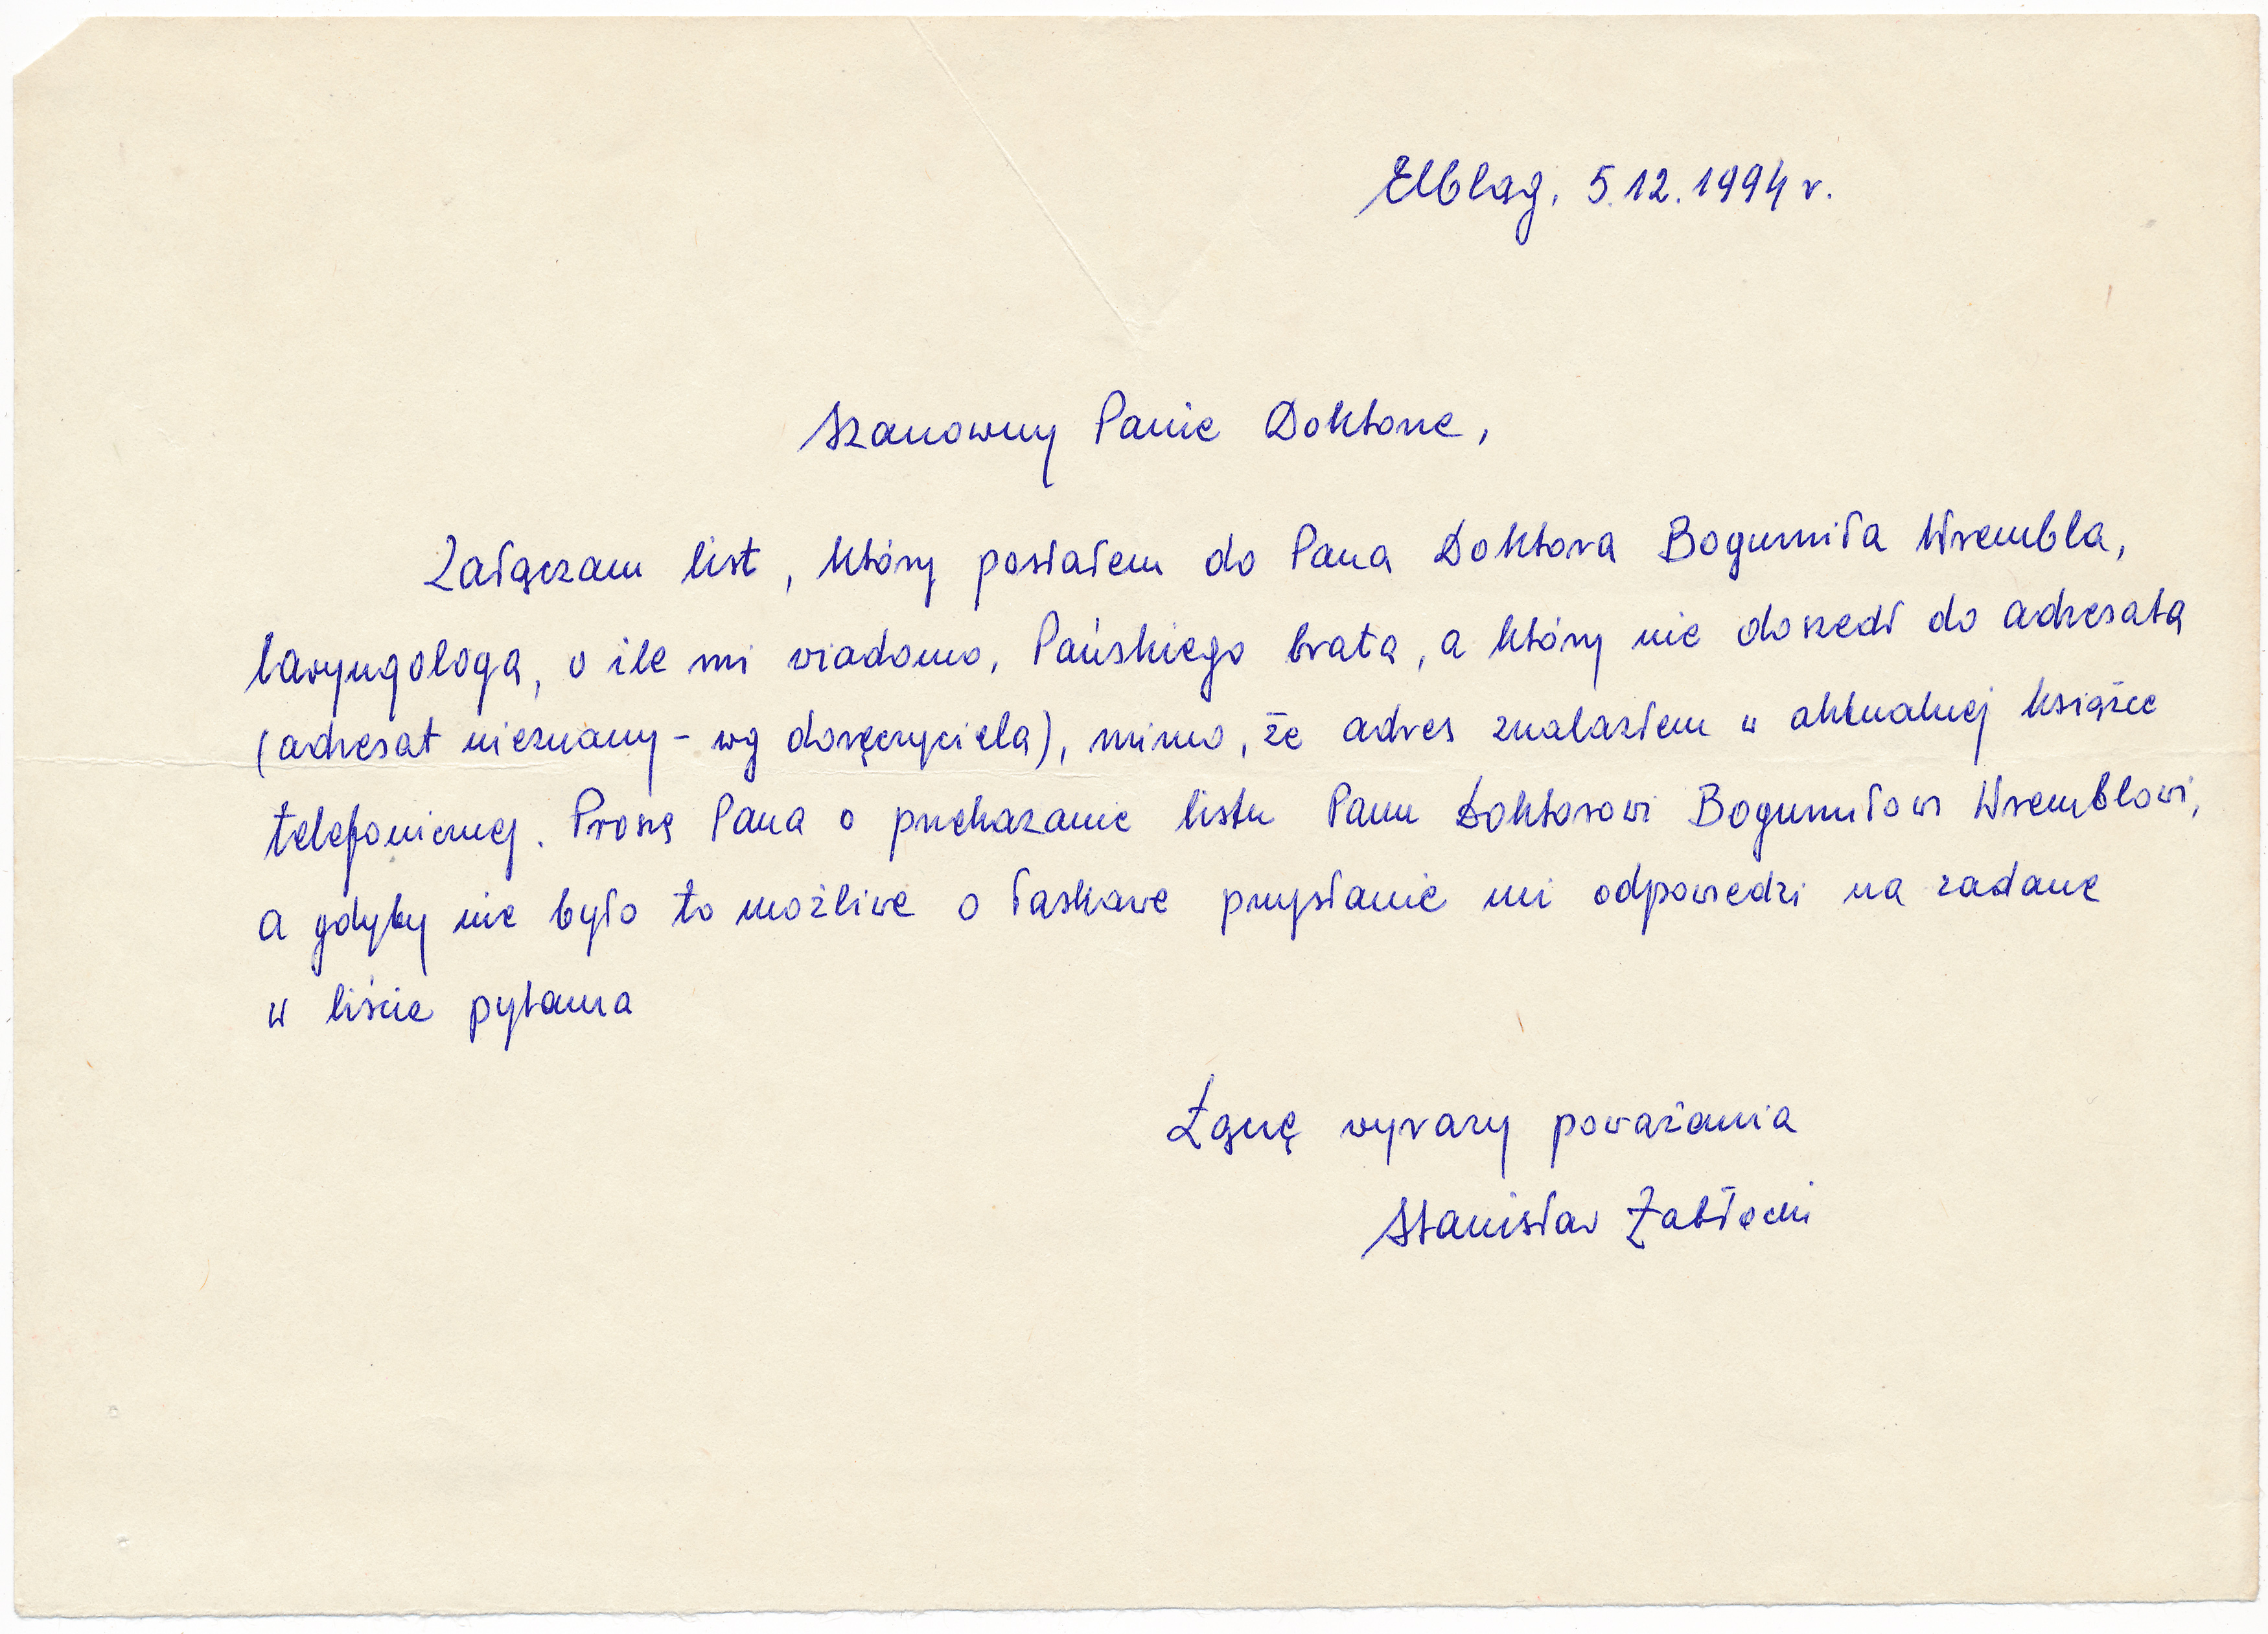 Elbląg, 5.12.1994 r.
Szanowny Panie Doktorze,
Załączam list, który posłałem do Pana Doktora Bogumiła Wrembla,
laryngologa, o ile mi wiadomo, Pańskiego brata, a który nie doszedł do adresata
(adresat nieznany - wg doręczyciela), mimo, że adres znalazłem w aktualnej książce
telefonicznej. Proszę Pana o przekazanie listu Panu Doktorowi Bogumiłowi Wremblowi,
a gdyby nie było to możliwe o łaskawe przysłanie mi odpowiedzi na zadane
w liście pytania
Łączę wyrazy poważania
Stanisław Żabłocki